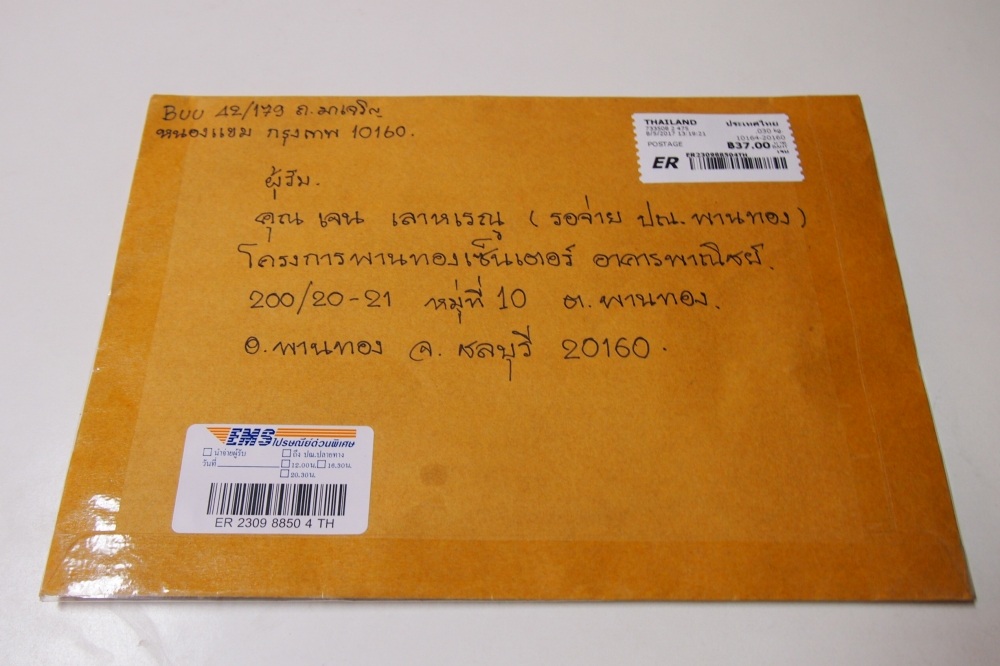 BUU 42/179 ถ.มาเจริญ
หนองแขม กรุงเทพ 10160.
THAILAND ประเทศไทย
.030 kg
8/5/2017 13:16:21 10164-20160
POSTAGE ฿37.00 บาท BAHT
ER ER230988504TH
ผู้รับ.
คุณ เจน เลาหเรณู (รอจ่าย ปณ.พานทอง)
โครงการพานทองเซ็นเตอร์ อาคารพาณิชย์.
200/20-21 หมู่ที่ 10 ต.พานทอง.
อ.พานทอง จ.ชลบุรี 20160.
EMS ไปรษณีย์ด่วนพิเศษ
นำจ่ายผู้รับ ถึง ปณ.ปลายทาง
วันที่ 12.00น. 16.30น.
20.30น.
ER 2309 8850 4 TH